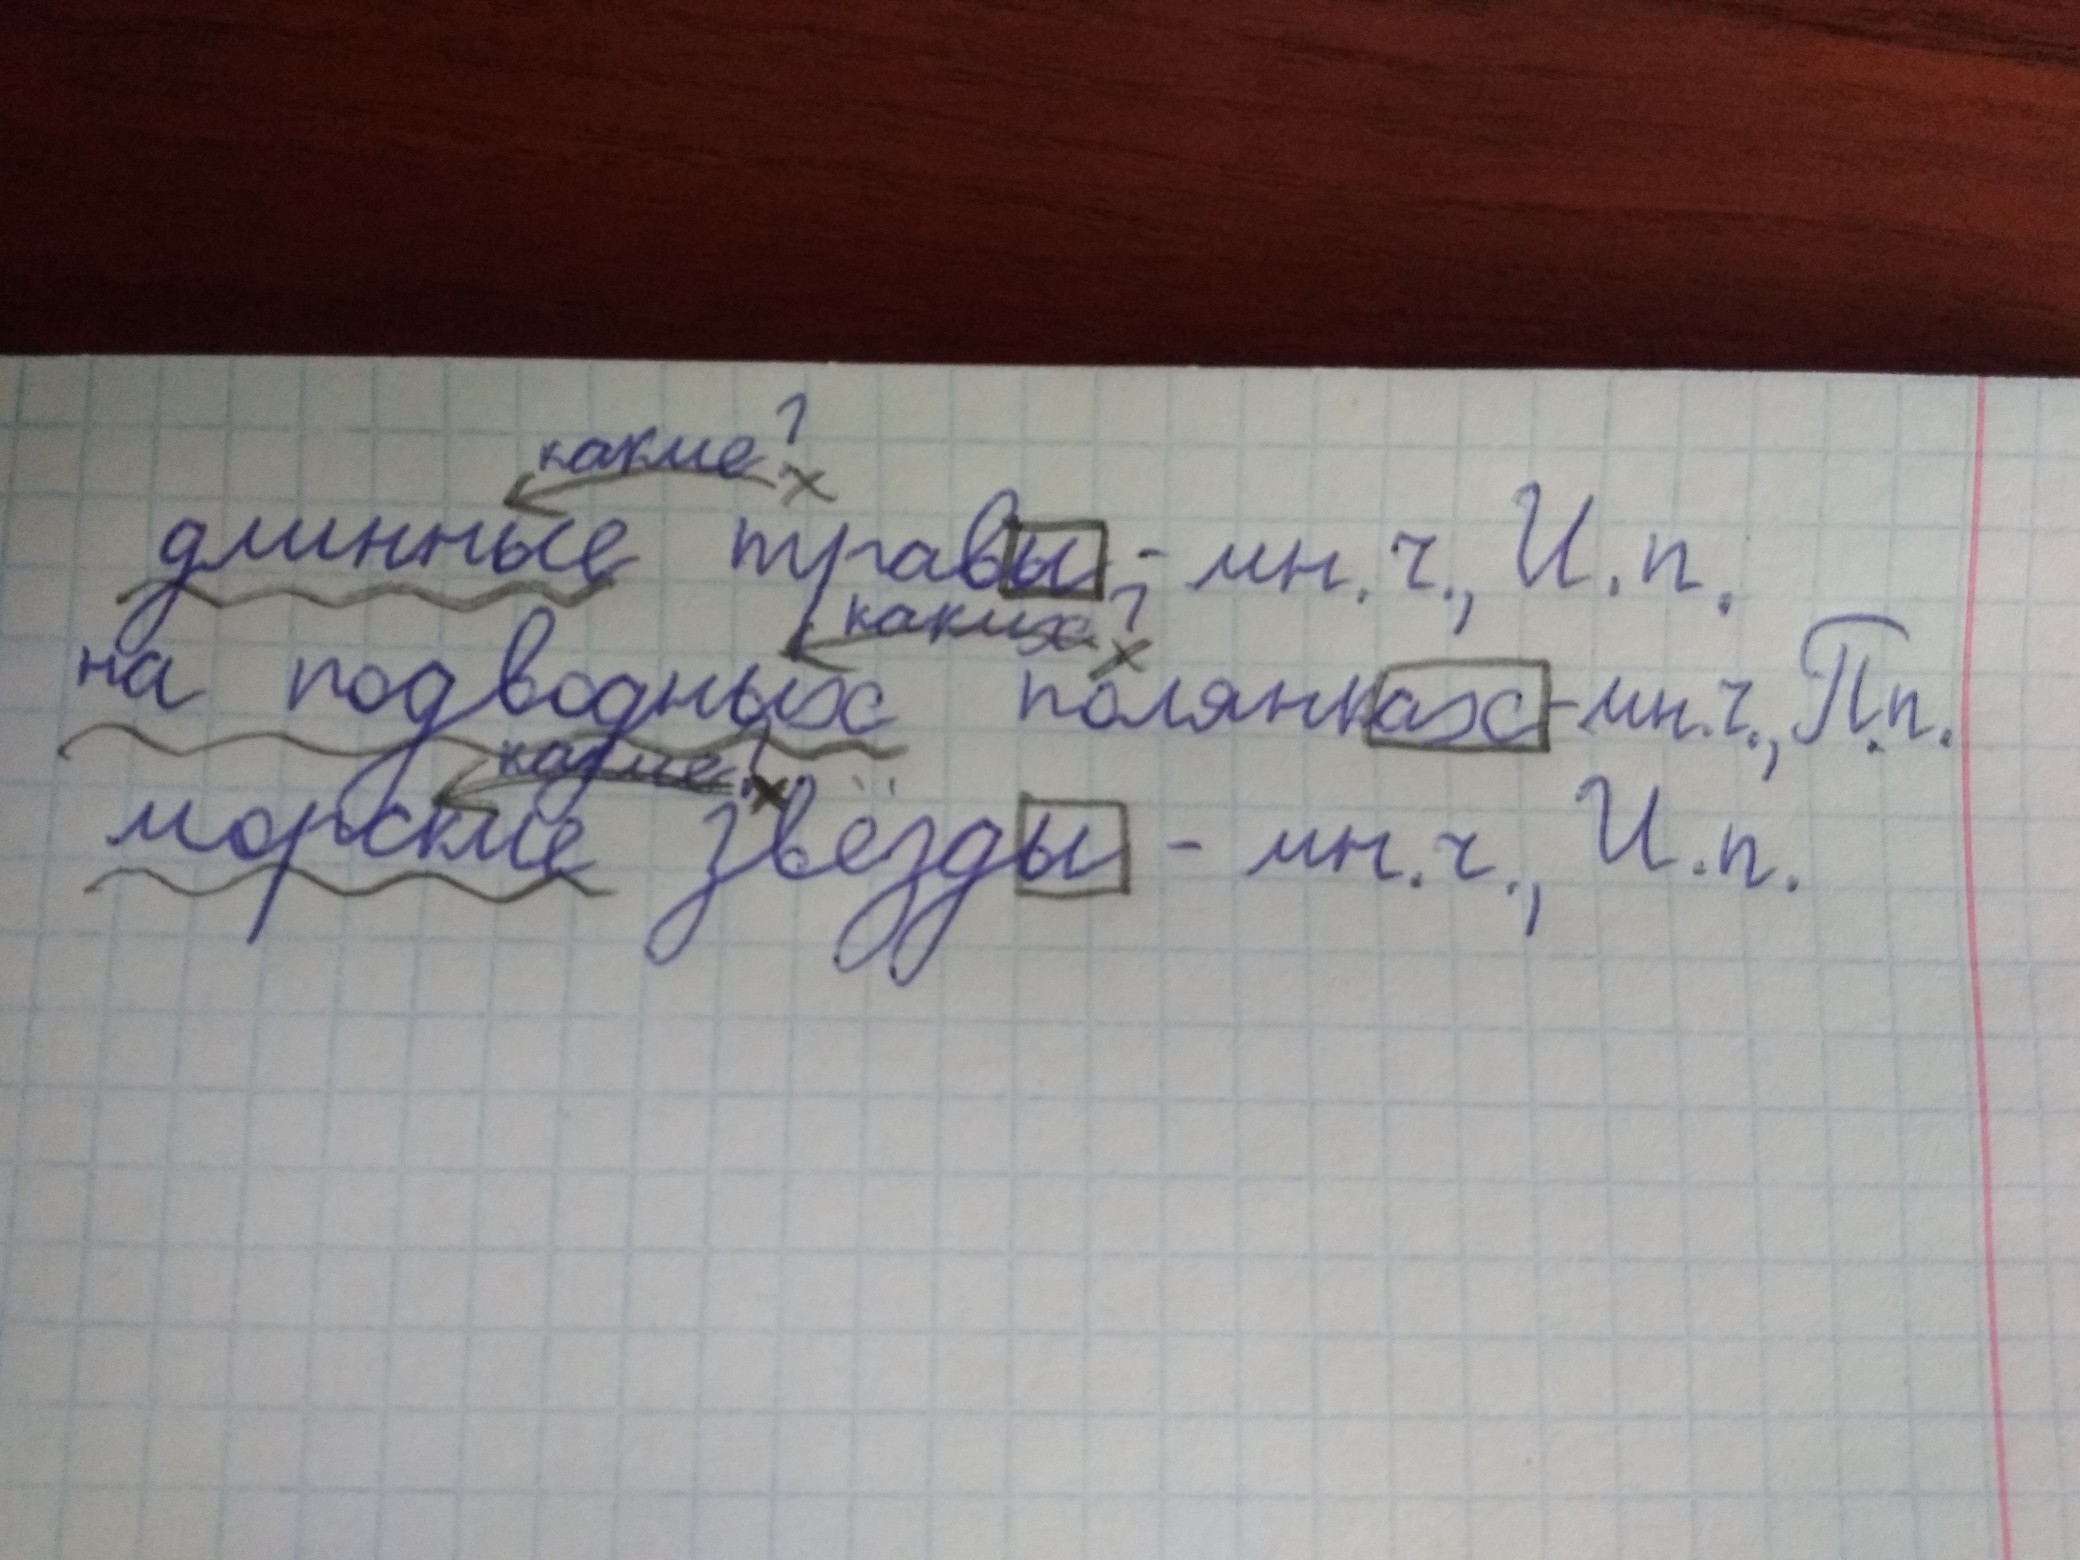 какие?
х
длинные травы - мн.ч., И.п.
каких?
х
на подводных полянках - мн.ч., П.п.
какие?
х
морские звёзды - мн.ч., И.п.